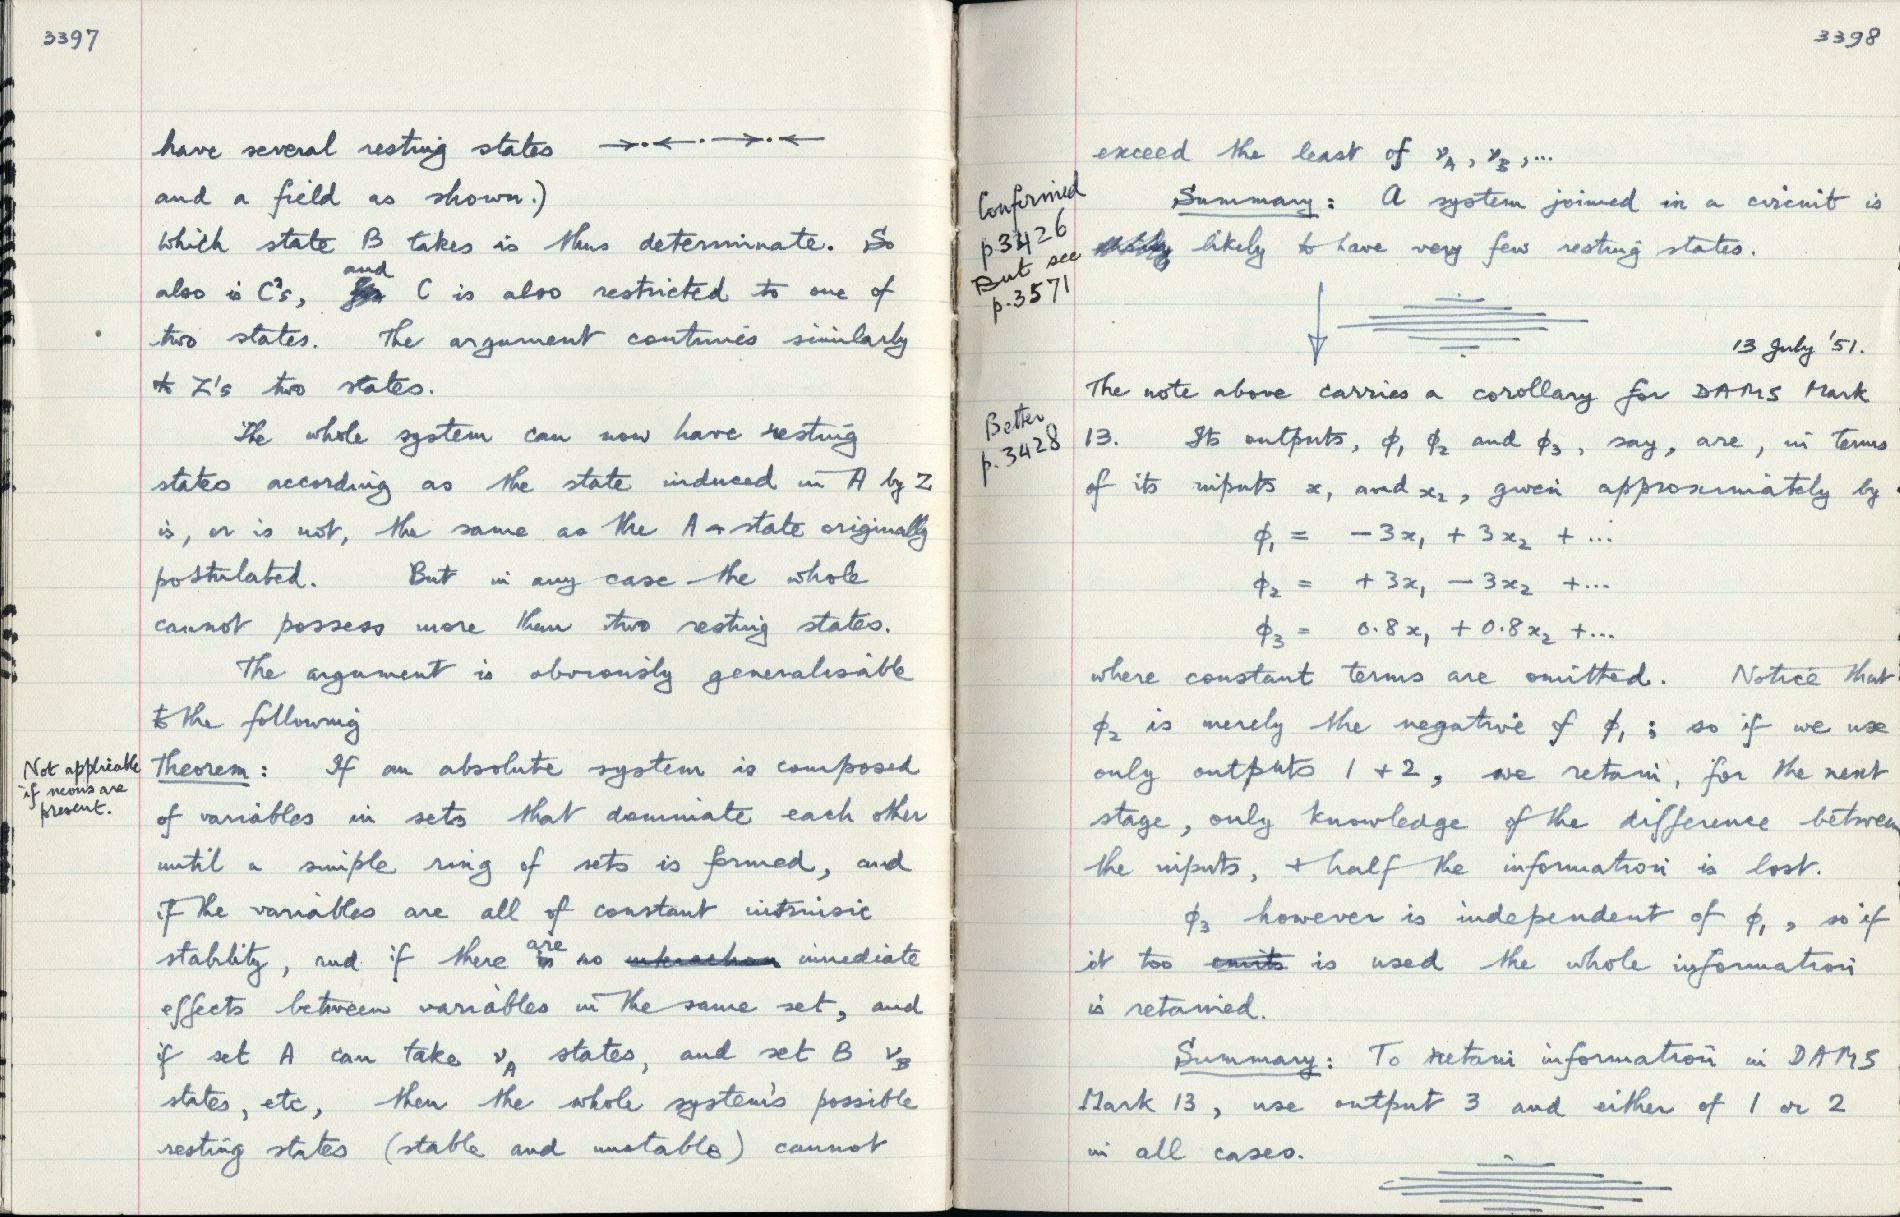 3397
have several resting states
and a field as shown.)
Which state B takes is thus determinate. So
also is C's, and C is also restricted to one of
two states. The argument continues similarly
to Z's two states.
The whole system can now have resting
states according as the state induced in A by Z
is, or is not, the same as the A-state originally
postulated. But in any case the whole
cannot possess more than two resting states.
The argument is obviously generalisable
to the following
Not applicable
if neons are
present.
Theorem: If an absolute system is composed
of variables in sets that dominate each other
until a simple ring of sets is formed, and
if the variables are all of constant intrinsic
stability, and if there are no immediate
effects between variables in the same set, and
if set A can take ν_A states, and set B ν_B
states, etc, then the whole system's possible
resting states (stable and unstable) cannot
3398
exceed the least of ν_A, ν_B, ...
Confirmed
p3426
But see
p.3571
Summary: A system joined in a circuit is
likely to have very few resting states.
13 July '51.
The note above carries a corollary for DAMS Mark
Better
p.3428
13. Its outputs, φ₁ φ₂ and φ₃, say, are, in terms
of its inputs x₁ and x₂, given approximately by
φ₁ = −3x₁ + 3x₂ + ...
φ₂ = +3x₁ − 3x₂ + ...
φ₃ = 0.8x₁ + 0.8x₂ + ...
where constant terms are omitted. Notice that
φ₂ is merely the negative of φ₁; so if we use
only outputs 1 + 2, we retain, for the next
stage, only knowledge of the difference between
the inputs, + half the information is lost.
φ₃ however is independent of φ₁, so if
it too is used the whole information
is retained.
Summary: To retain information in DAMS
Mark 13, use output 3 and either of 1 or 2
in all cases.